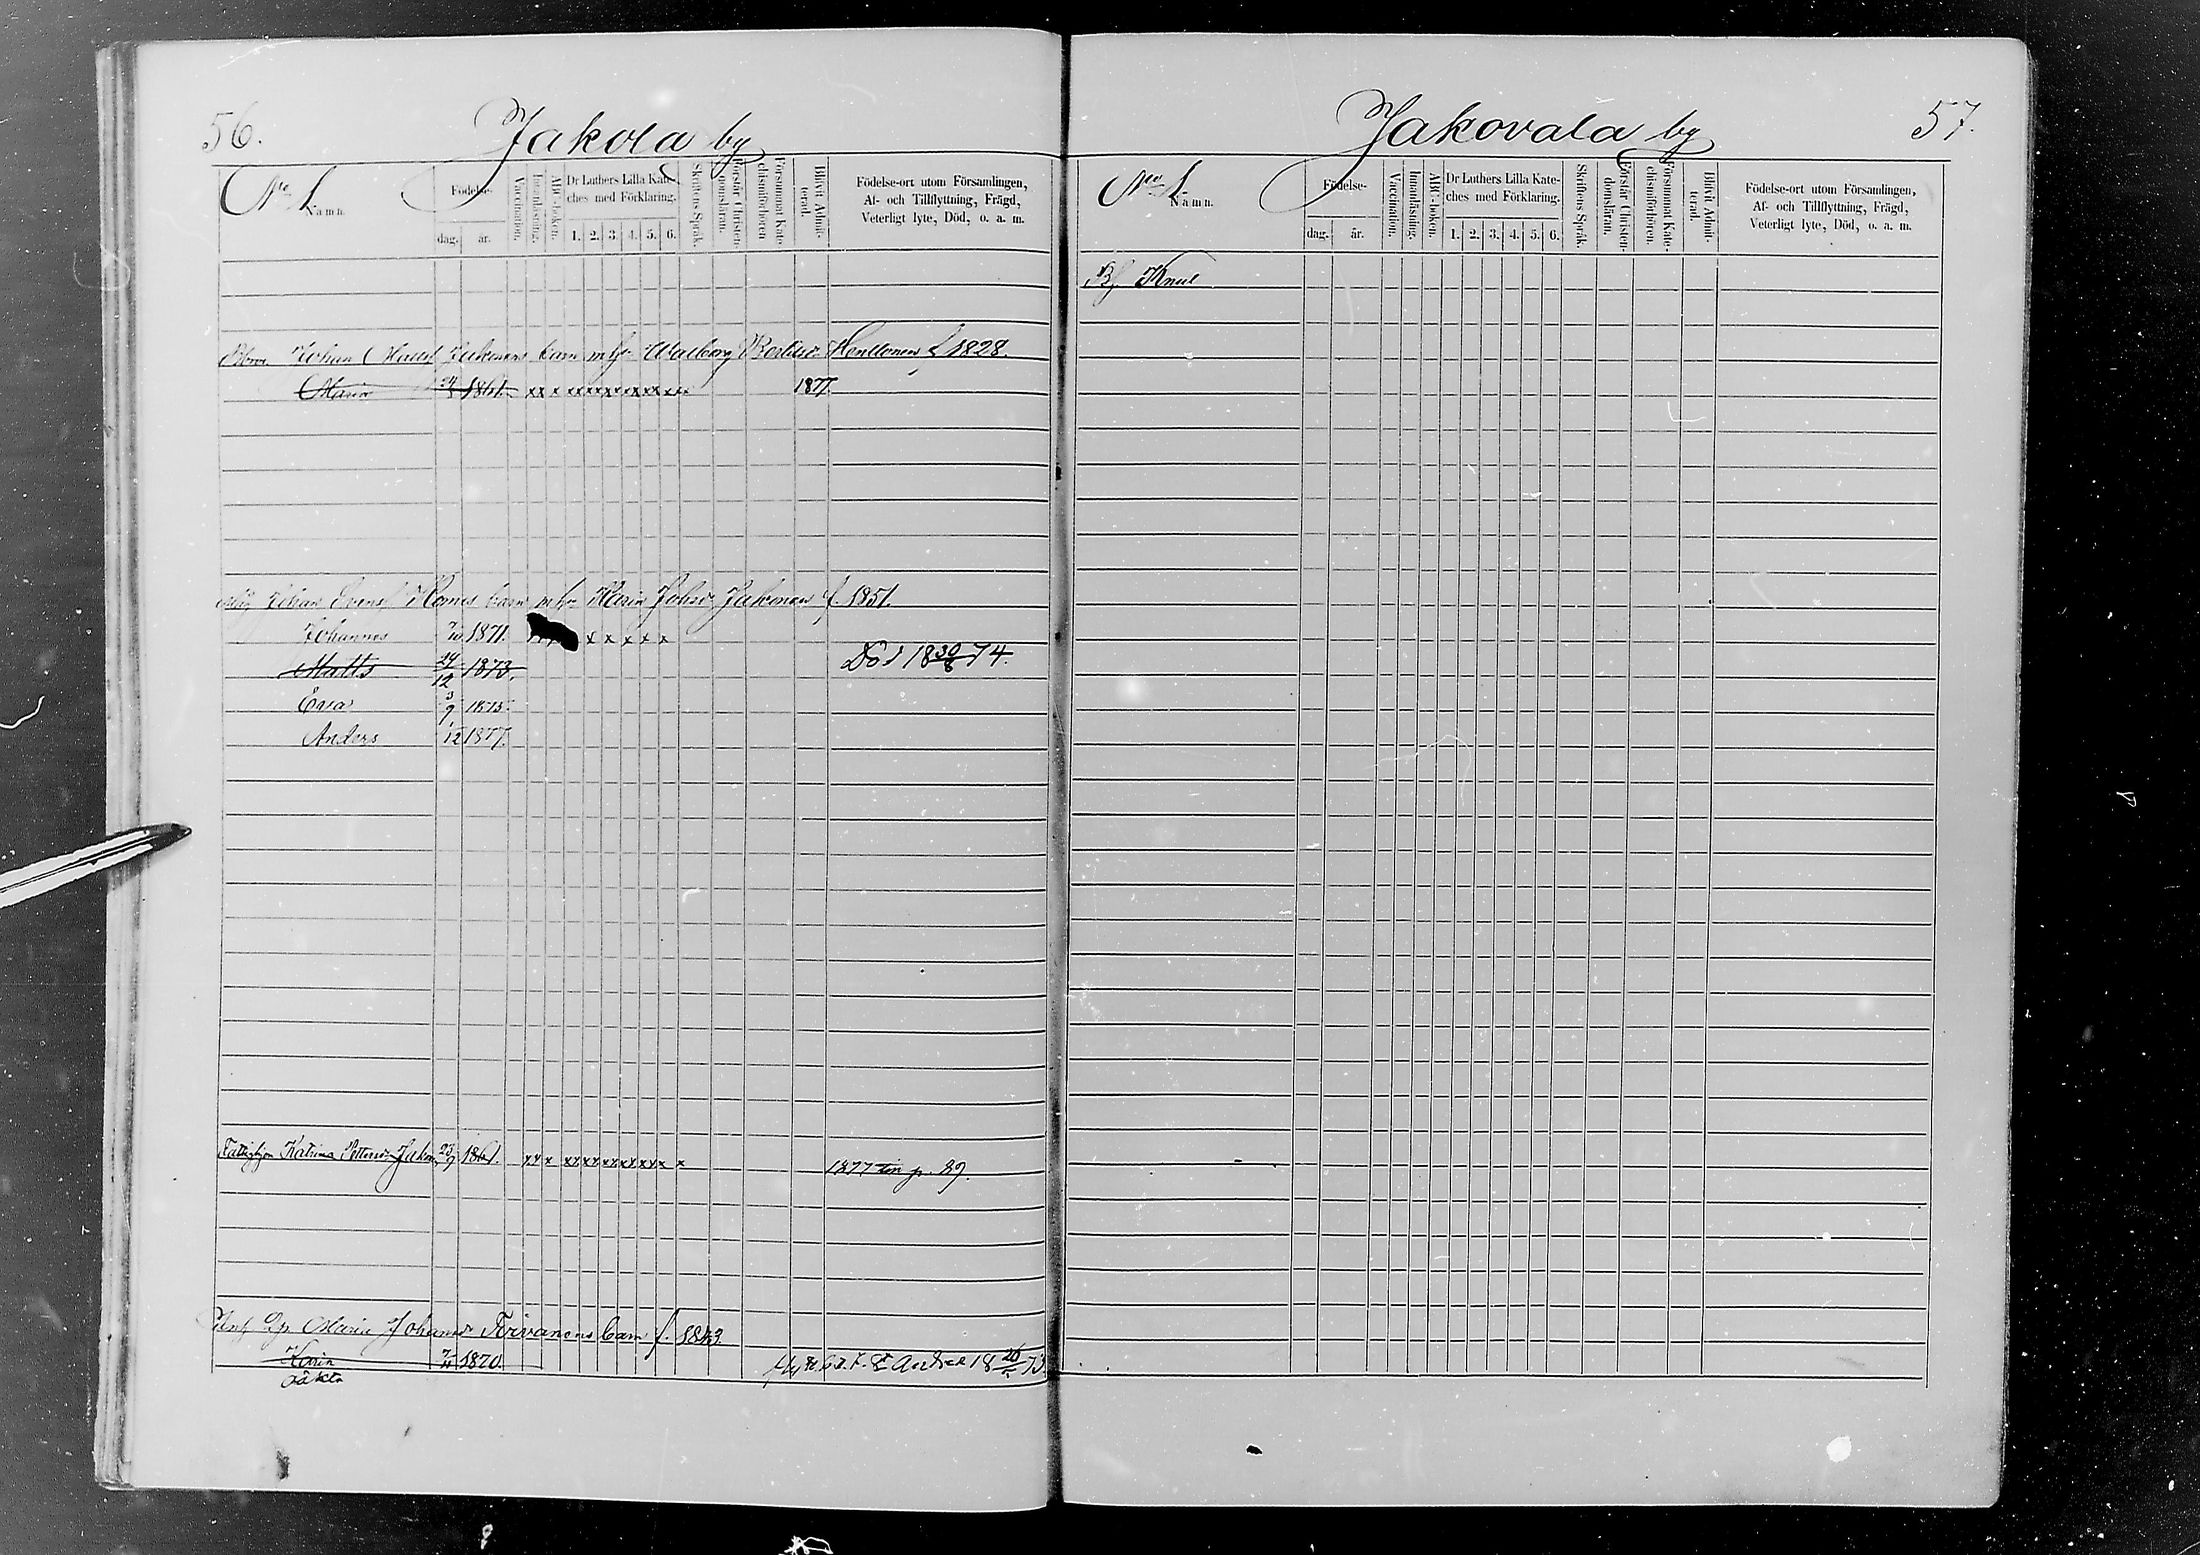 56.
Jakola by
No 1.
Namn.
Födelse-
dag. år.
Vaccination.
Innanläsning.
ABC-boken.
Dr Luthers Lilla Kate-
ches med Förklaring.
1. 2. 3. 4. 5. 6.
Skriftens Språk.
Förstår Christen-
domsläran.
Försummat Kate-
chismiförhören
Blivit Admit-
terad.
Födelse-ort utom Församlingen,
Af- och Tillflyttning, Frägd,
Veterligt lyte, Död, o. a. m.
Johan barn m h Walborg f 1828.
Maria 24 1861. xx x xx xx xx xx xx xx 1877.
Johan barn m h Maria Johsd Jakonen f. 1851.
Johannes 7/10 1871. x x x x x
Matts 24/12 1873. Död 18 30/8 74.
Ewa 3/9 1875.
Anders 1/12 1877.
Fattighjon Katrina Pettersd Jakon 23/9 1861. xx x xx xx xx xx xx x 1877 p. 89.
Maria Johansd Torvanens barn f. 1843
Karin 1870.
oäkta
57.
Jakovala by
No 1.
Namn.
Födelse-
dag. år.
Vaccination.
Innanläsning.
ABC-boken.
Dr Luthers Lilla Kate-
ches med Förklaring.
1. 2. 3. 4. 5. 6.
Skriftens Språk.
Förstår Christen-
domsläran.
Försummat Kate-
chismiförhören.
Blivit Admit-
terad.
Födelse-ort utom Församlingen,
Af- och Tillflyttning, Frägd,
Veterligt lyte, Död, o. a. m.